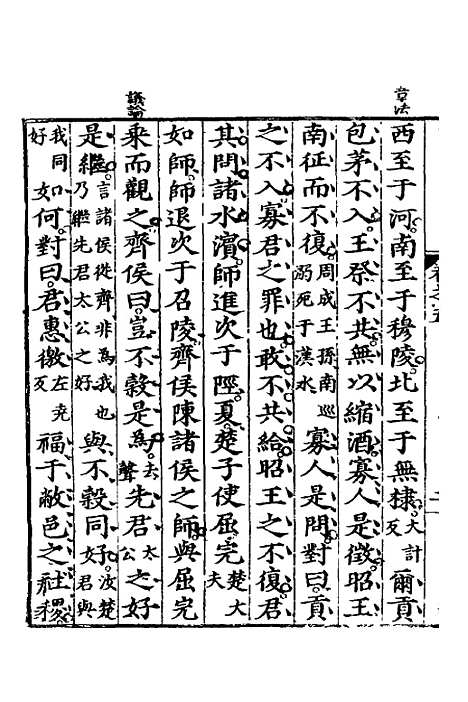 章法
西至于河南至于穆陵北至于無棣大計反爾貢
包茅不入王祭不共無以縮酒寡人是徵昭王
南征而不復周成王孫南巡溺死于漢水寡人是問對曰貢
之不入寡君之罪也敢不共給昭王之不復君
其問諸水濱師進次于陘夏楚子使屈完楚大夫
如師師退次于召陵齊侯陳諸侯之師與屈完
議論
乘而觀之齊侯曰豈不穀是爲去聲先君太公之好
是繼言諸侯從齊非為我也乃繼先君太公之好與不穀同好汝楚君與
我同好如何對曰君惠徼左堯反福于敝邑之社稷